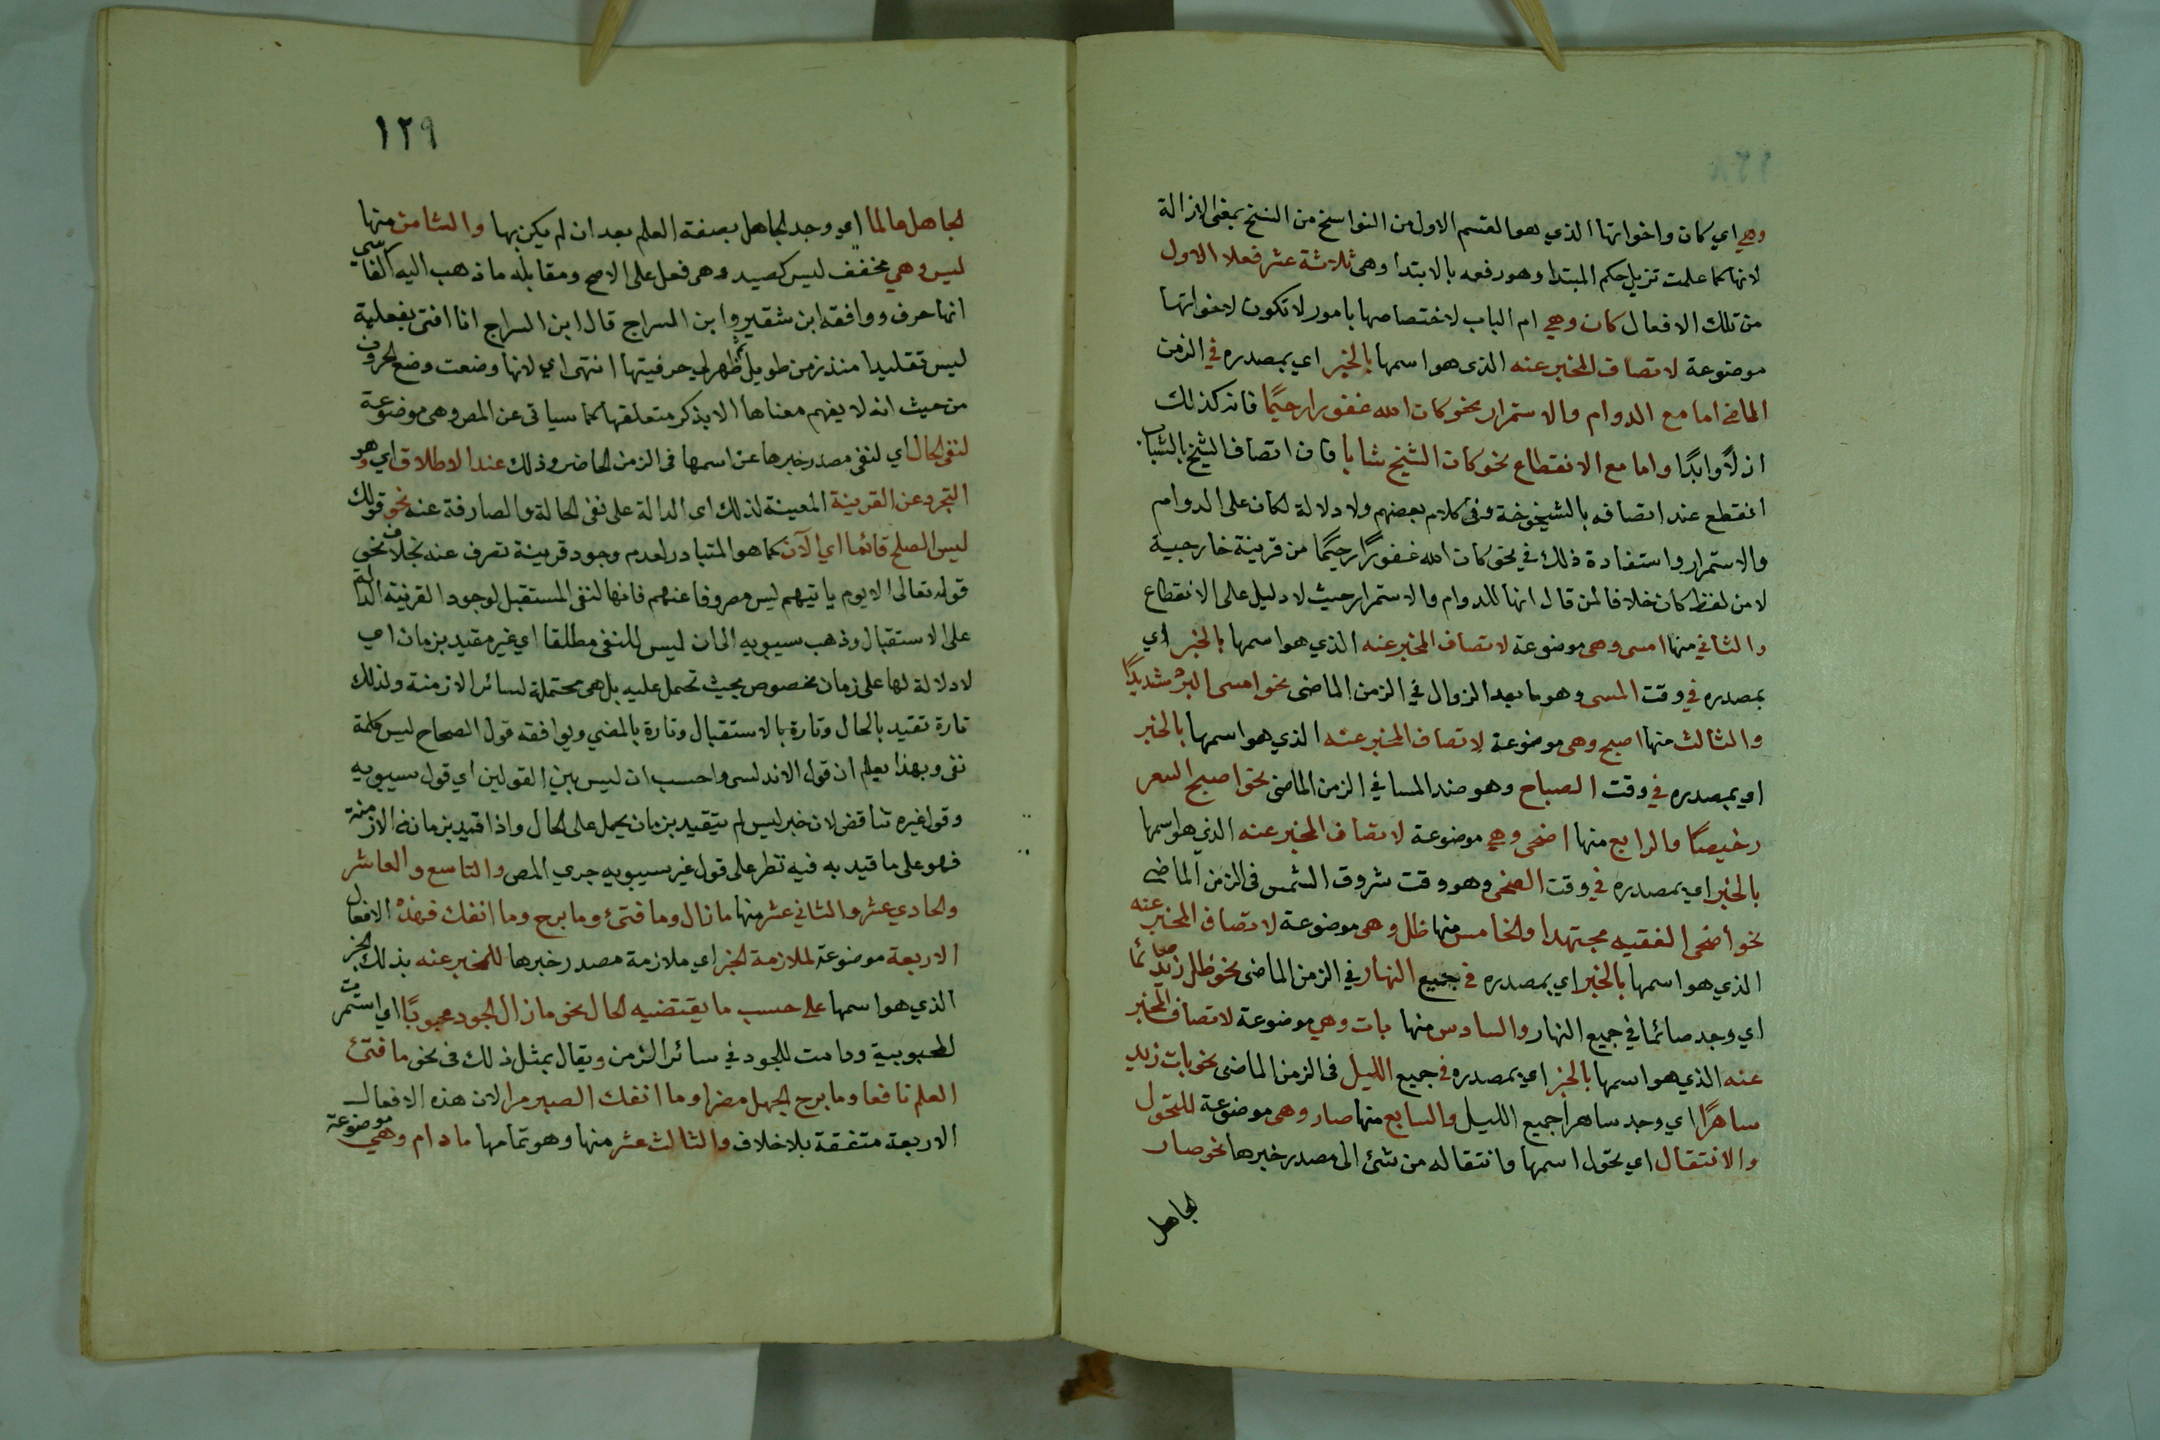 وهي اي كان واخواتها الذي هو القسم الاول من النواسخ من النسخ بمعنى الازالة
لانها كما علمت تزيل حكم المبتدا وهو رفعه بالابتدا وهي ثلاثة عشر فعلا الاول
من تلك الافعال كان وهي ام الباب لاختصاصها بامور لا تكون لاخواتها
موضوعة لاتصاف المخبر عنه الذي هو اسمها بالخبر اي بمصدره في الزمن
الماضي اما مع الدوام والاستمرار نحو كان الله غفورا رحيمًا فانه كذلك
ازلًا وابدًا واما مع الانقطاع نحو كان الشيخ شابا فان اتصاف الشيخ بالشباب
انقطع عند اتصافه بالشيخوخة وفي كلام بعضهم ولا دلالة لكان على الدوام
والاستمرار واستفادة ذلك في نحو كان الله غفورًا رحيمًا من قرينة خارجية
لا من لفظ كان خلافا لمن قال انها للدوام والاستمرار حيث لا دليل على الانقطاع
والثاني منها امسى وهي موضوعة لاتصاف المخبر عنه الذي هو اسمها بالخبر اي
بمصدره في وقت المسى وهو ما بعد الزوال في الزمن الماضى نحو امسى البرد شديدًا
والثالث منها اصبح وهي موضوعة لاتصاف المخبر عنه الذي هو اسمها بالخبر
اي بمصدره في وقت الصباح وهو ضد المسا في الزمن الماضى نحو اصبح السعر
رخيصًا والرابع منها اضحى وهي موضوعة لاتصاف المخبر عنه الذي هو اسمها
بالخبر اي بمصدره في وقت الضحى وهو وقت شروق الشمس في الزمن الماضي
نحو أضحى الفقيه مجتهدا والخامس منها ظل وهي موضوعة لاتصاف المخبر عنه
الذي هو اسمها بالخبر اي بمصدره في جميع النهار في الزمن الماضى نحو ظل زيد صائما
اي وجد صائما في جميع النهار والسادس منها بات وهي موضوعة لاتصاف المخبر
عنه الذي هو اسمها بالخبر اي بمصدره في جميع الليل في الزمن الماضى نحو بات زيد
ساهرًا اي وجد ساهرا جميع الليل والسابع منها صار وهي موضوعة للتحول
والانتقال اي تحول اسمها وانتقاله من شئ الى مصدر خبرها نحو صار
الجاهل
١٢٩
الجاهل عالما اي وجد الجاهل بصفة العلم بعد ان لم يكن بها والثامن منها
ليس وهي مخفف ليس كصيد وهي فعل على الاصح ومقابله ما ذهب اليه الفارسي
انها حرف ووافقه ابن شقير وابن السراج قال ابن السراج انا افتى بفعلية
ليس تقليدا منذ زمن طويل ثم ظهر لي حرفيتها انتهى اي لانها وضعت وضع الحروف
من حيث انه لا يفهم معناها الا بذكر متعلقها كما سياتي عن المص وهي موضوعة
لنفي الحال اي لنفي مصدر خبرها عن اسمها في الزمن الحاضر وذلك عند الاطلاق اي وهو
التجرد عن القرينة المعينة لذلك اي الدالة على نفي الحالة والصارفة عنه نحو قولك
ليس الصلح قائما اي الآن كما هو المتبادر لعدم وجود قرينة تصرف عنه بخلاف نحو
قوله تعالى الا يوم ياتيهم ليس مصروفا عنهم فانها لنفي المستقبل لوجود القرينة الدالة
على الاستقبال وذهب سيبويه الى ان ليس للنفي مطلقا اي غير مقيد بزمان اي
لا دلالة لها على زمان مخصوص بحيث تحمل عليه بل هي محتملة لسائر الازمنة ولذلك
تارة تقيد بالحال وتارة بالاستقبال وتارة بالمضي ويوافقه قول الصحاح ليس كلمة
نفي وبهذا يعلم ان قول الاندلسي واحسب ان ليس بين القولين اي قول سيبويه
وقول غيره تناقض لان خبر ليس لم يتقيد بزمان يحمل على الحال واذا قيد بزمان من الازمنة
فهو على ما قيد به فيه نظر على قول غير سيبويه جرى المص والتاسع والعاشر
والحادي عشر والثاني عشر منها ما زال وما فتئ وما برح وما انفك فهذه الافعال
الاربعة موضوعة لملازمة الخبر اي ملازمة مصدر خبرها للمخبر عنه بذلك الخبر
الذي هو اسمها على حسب ما يقتضيه الحال نحو ما زال الجود محبوبًا اي استمرت
المحبوبية ودامت للجود في سائر الزمن ويقال بمثل ذلك في نحو ما فتئ
العلم نافعا وما برح الجهل مضرا وما انفك الصبر مرا لان هذه الافعال
الاربعة متفقة بلا خلاف والثالث عشر منها وهو تمامها ما دام وهي موضوعة